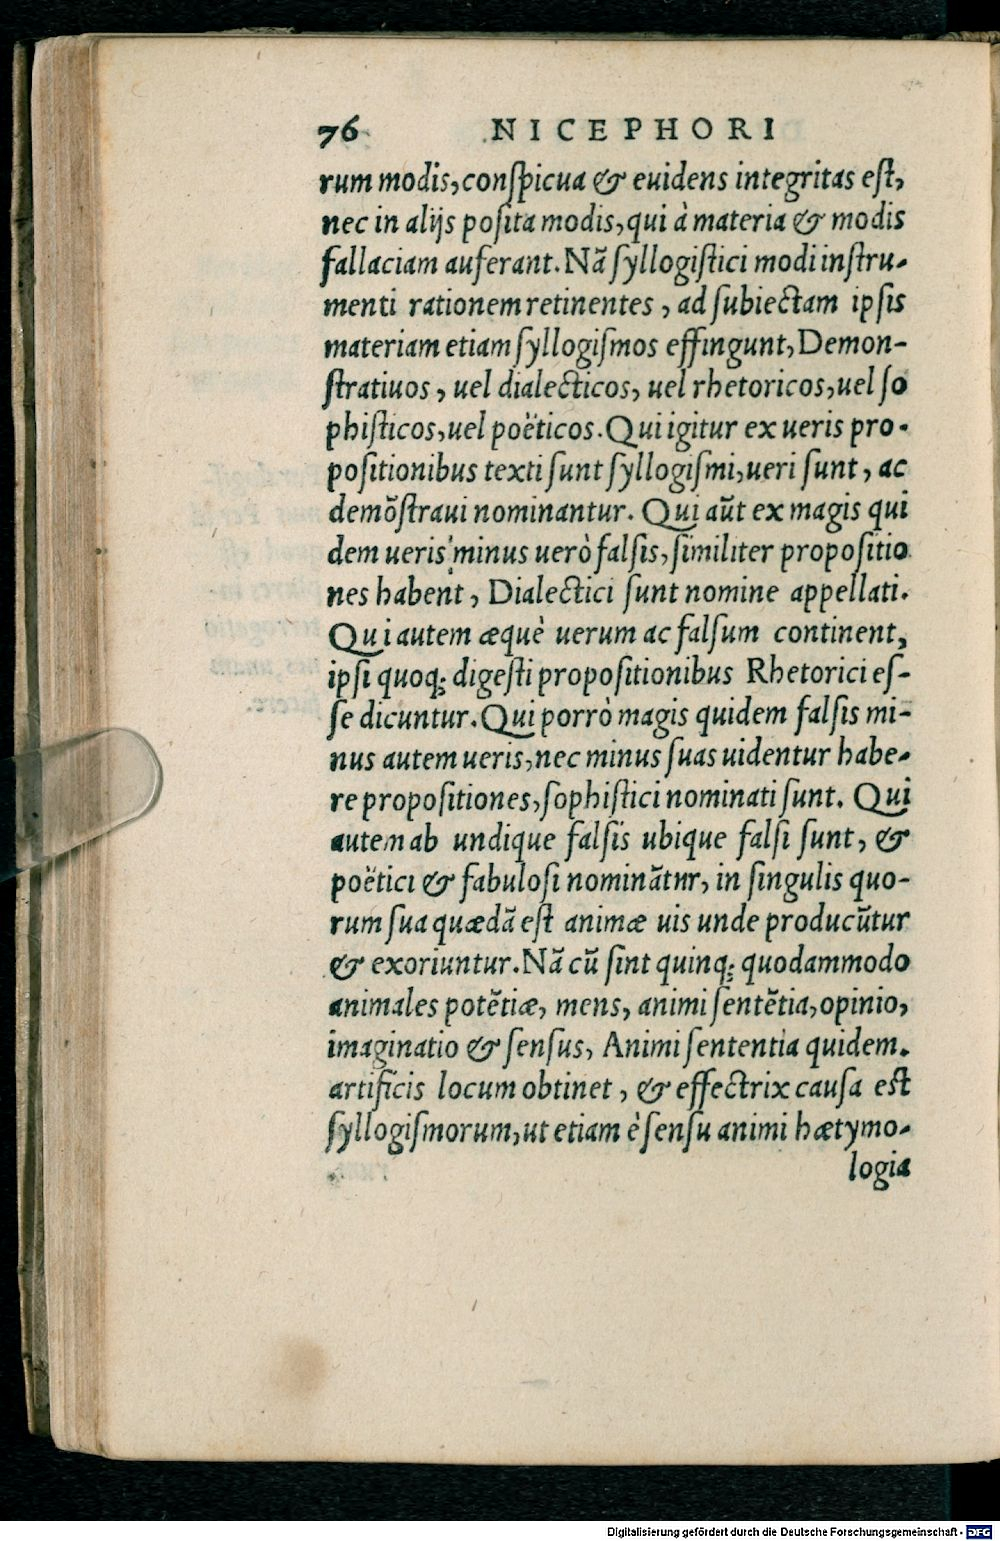 76 NICEPHORI
rum modis, conſpicua & euidens integritas eſt,
nec in alijs poſita modis, qui à materia & modis
fallaciam auferant. Nã ſyllogiſtici modi inſtru-
menti rationem retinentes, ad ſubiectam ipſis
materiam etiam ſyllogiſmos effingunt, Demon-
ſtratiuos, uel dialecticos, uel rhetoricos, uel ſo
phiſticos, uel poëticos. Qui igitur ex ueris pro-
poſitionibus texti ſunt ſyllogiſmi, ueri ſunt, ac
demõſtraui nominantur. Qui aũt ex magis qui
dem ueris minus uerò falſis, ſimiliter propoſitio
nes habent, Dialectici ſunt nomine appellati.
Qui autem æquè uerum ac falſum continent,
ipſi quoq; digeſti propoſitionibus Rhetorici eſ-
ſe dicuntur. Qui porrò magis quidem falſis mi-
nus autem ueris, nec minus ſuas uidentur habe-
re propoſitiones, ſophiſtici nominati ſunt. Qui
autem ab undique falſis ubique falſi ſunt, &
poëtici & fabuloſi nominãtur, in ſingulis quo-
rum ſua quædã eſt animæ uis unde producũtur
& exoriuntur. Nã cũ ſint quinq; quodammodo
animales potẽtiæ, mens, animi ſentẽtia, opinio,
imaginatio & ſenſus, Animi ſententia quidem.
artificis locum obtinet, & effectrix cauſa eſt
ſyllogiſmorum, ut etiam è ſenſu animi hætymo-
logia
Digitalisierung gefördert durch die Deutsche Forschungsgemeinschaft - DFG